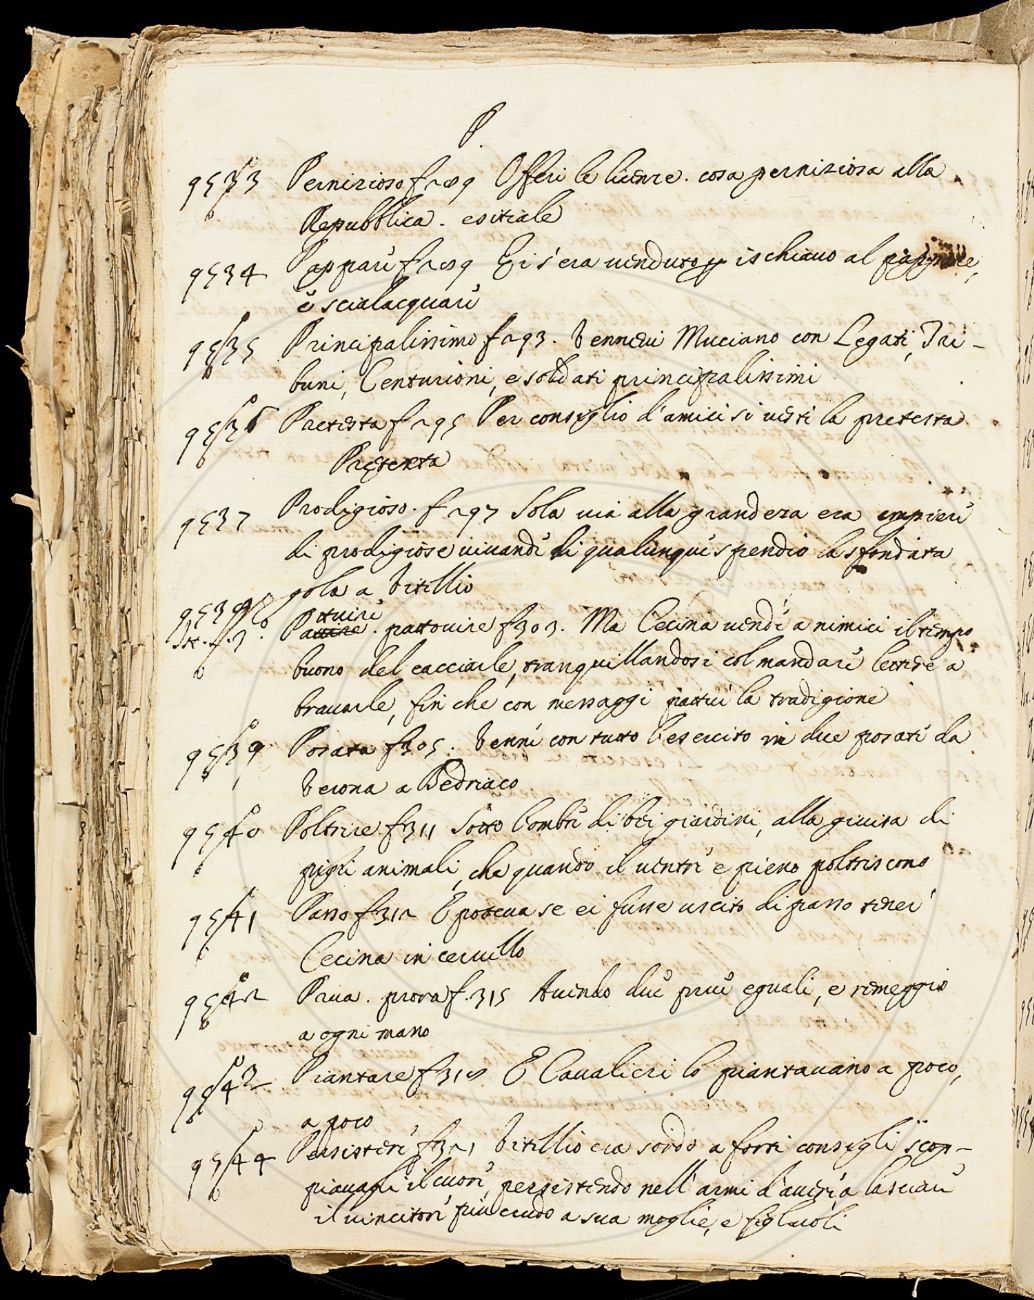 P.
9533 Pernizioso f 289 Offerì le licenze. cosa perniziosa alla
Repubblica. esitiale
9534 Pappare f 289 Ei s'era venduto ischiavo al
e scialacquare
9535 Principalissimo f 293. Vennevi Muciano con Legati, Tri-
buni, Centurioni, e soldati principalissimi
9536 Pretesta f 295 Per consiglio d'amici si vestì la pretesta
Pretexta
9537 Prodigioso. f 297 Sola via alla grandeza era empiere
di prodigiose vivande di qualunque spendio la sfondata
gola a Vitellio
9538
St. f. 2. Pattuire. pattovire f 303. Ma Cecina vende a nimici il tempo
buono del cacciarle, tranquillandosi col mandare lettere a
bravarle, fin che con messaggi pattuì la tradigione
9539 Posata f 305. Venne con tutto l'esercito in due posate da
Verona a Bedriaco
9540 Poltrire f 311 Sotto l'ombre di bei giardini, alla guisa di
pigri animali, che quando il ventre e pieno poltriscono
9541 Passo f 312 E poteva se ei fusse uscito di passo tener
Cecina in cervello
9542 Prua. prora f. 315 Avendo due prue eguali, e remeggio
a ogni mano
9543 Piantare f 318 E Cavalieri lo piantavano a poco,
a poco
9544 Persistere f 321 Vitellio era sordo a forti consigli scop-
piavagli il cuore persistendo nell'armi d'avere a lasciare
il vincitore più crudo a sua moglie, e figliuoli